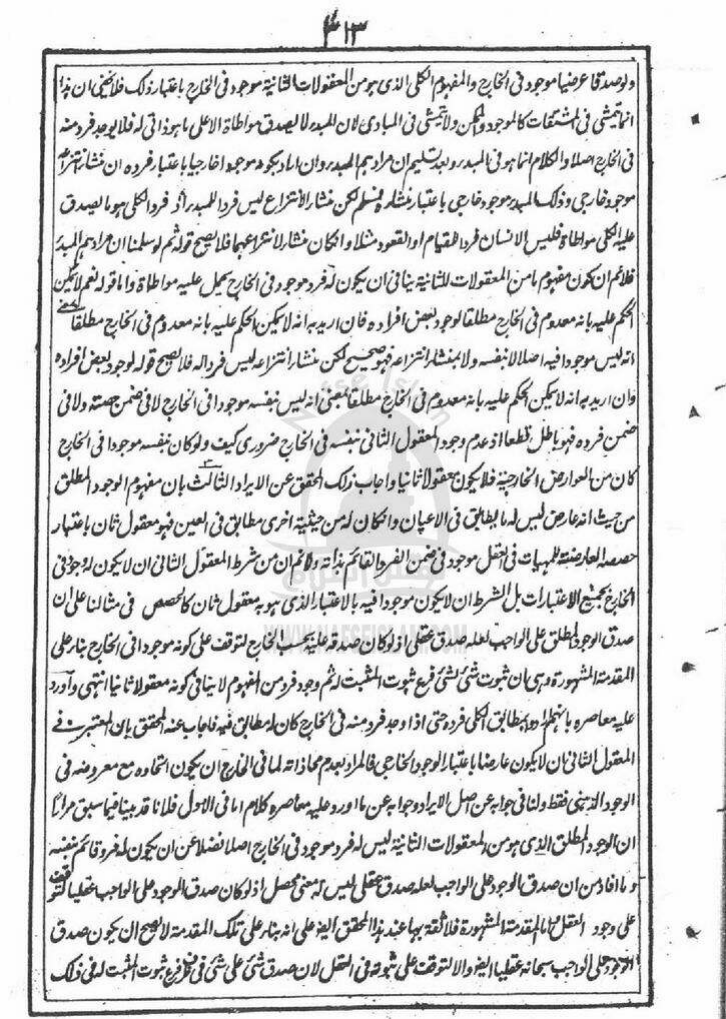 ٤١٣
ولو صدقا عرضيا موجود فى الخارج والمفهوم الكلى الذى هو من المعقولات الثانية موجود فى الخارج باعتبار ذلك فلا يخفى ان هذا
انما يتمشى فى المشتقات كالموجود والممكن ولا يتمشى فى المبادى لان المبدء لا يصدق مواطاة الا على ما هو ذاتى له فلا يوجد فرد منه
فى الخارج اصلا والكلام انما هو فى المبدء وبعد تسليم ان مرادهم المبدء وان اراد بكونه موجودا خارجيا باعتبار فرده ان منشا انتزاعه
موجود خارجى وذلك المبدء موجود خارجى باعتبار منشائه فمسلم لكن منشا الانتزاع ليس فردا للمبدء اذ فرد الكلى هو ما يصدق
عليه الكلى مواطاة فليس الانسان فردا للقيام او القعود مثلا وانكان منشا لانتزاعهما فلا يصح قوله ثم لو سلمنا ان مرادهم المبدء
فلا نم ان كون مفهوم ما من المعقولات الثانية ينافى ان يكون له فرد موجود فى الخارج يحمل عليه مواطاة واما قوله نعم لا يمكن
الحكم عليه بانه معدوم فى الخارج مطلقا لوجود بعض افراده فان اريد به انه لا يمكن الحكم عليه بانه معدوم فى الخارج مطلقا بمعنى
انه ليس موجودا فيه اصلا لا بنفسه ولا بمنشا انتزاعه فهو صحيح لكن منشا انتزاعه ليس فردا له فلا يصح قوله لوجود بعض افراده
وان اريد به انه لا يمكن الحكم عليه بانه معدوم فى الخارج مطلقا بمعنى انه ليس بنفسه موجودا فى الخارج لا فى ضمن حصته ولا فى
ضمن فرده فهو باطل قطعا اذ عدم وجود المعقول الثانى بنفسه فى الخارج ضرورى كيف ولو كان بنفسه موجودا فى الخارج
كان من العوارض الخارجية فلا يكون معقولا ثانيا واجاب ذلك المحقق عن الايراد الثالث بان مفهوم الوجود المطلق
من حيث انه عارض ليس له ما يطابق فى الاعيان وانكان له من حيثية اخرى مطابق فى العين فهو معقول ثان باعتبار
حصصه العارضة للمهيات فى العقل موجود فى ضمن الفرد القائم بذاته ولا نم ان من شرط المعقول الثانى ان لا يكون له وجود فى
الخارج بجميع الاعتبارات بل الشرط ان لا يكون موجودا فيه بالاعتبار الذى هو به معقول ثان كالحصص فى مثالنا على ان
صدق الوجود المطلق على الواجب لعله صدق عقلى اذ لو كان صدقه عليه بحسب الخارج لتوقف على كونه موجودا فى الخارج بناء على
المقدمة المشهورة وهى ان ثبوت شئ لشئ فرع ثبوت المثبت له ثم وجود فرد من المفهوم لا ينافى كونه معقولا ثانيا انتهى واورد
عليه معاصره بانهم ارادوا بمطابق الكلى فرده حتى اذا وجد فرد منه فى الخارج كان له مطابق فيه فاجاب عنه المحقق بان المعتبر فى
المعقول الثانى ان لا يكون عارضا باعتبار الوجود الخارجى فالمراد بعدم محاذاته لما فى الخارج ان يكون اتحاده مع معروضه فى
الوجود الذهنى فقط ولنا فى جوابه عن اصل الايراد وجوابه عن ما اورد عليه معاصره كلام اما فى الاول فلانا قد بينا فيما سبق مرارا
ان الوجود المطلق الذى هو من المعقولات الثانية ليس له فرد موجود فى الخارج اصلا فضلا عن ان يكون له فرد قائم بنفسه
وما افاد من ان صدق الوجود على الواجب لعله صدق عقلى ليس له معنى محصل اذ لو كان صدق الوجود على الواجب عقليا لتوقف
على وجود العقل واما المقدمة المشهورة فلا ثقة بها عند هذا المحقق ايضا على انه بناء على تلك المقدمة لا يصح ان يكون صدق
الوجود على الواجب سبحانه عقليا ايضا والا لتوقف على ثبوته فى العقل لان صدق شئ على شئ فى ظرف فرع ثبوت المثبت له فى ذلك
WWW.NAFSEISLAM.COM